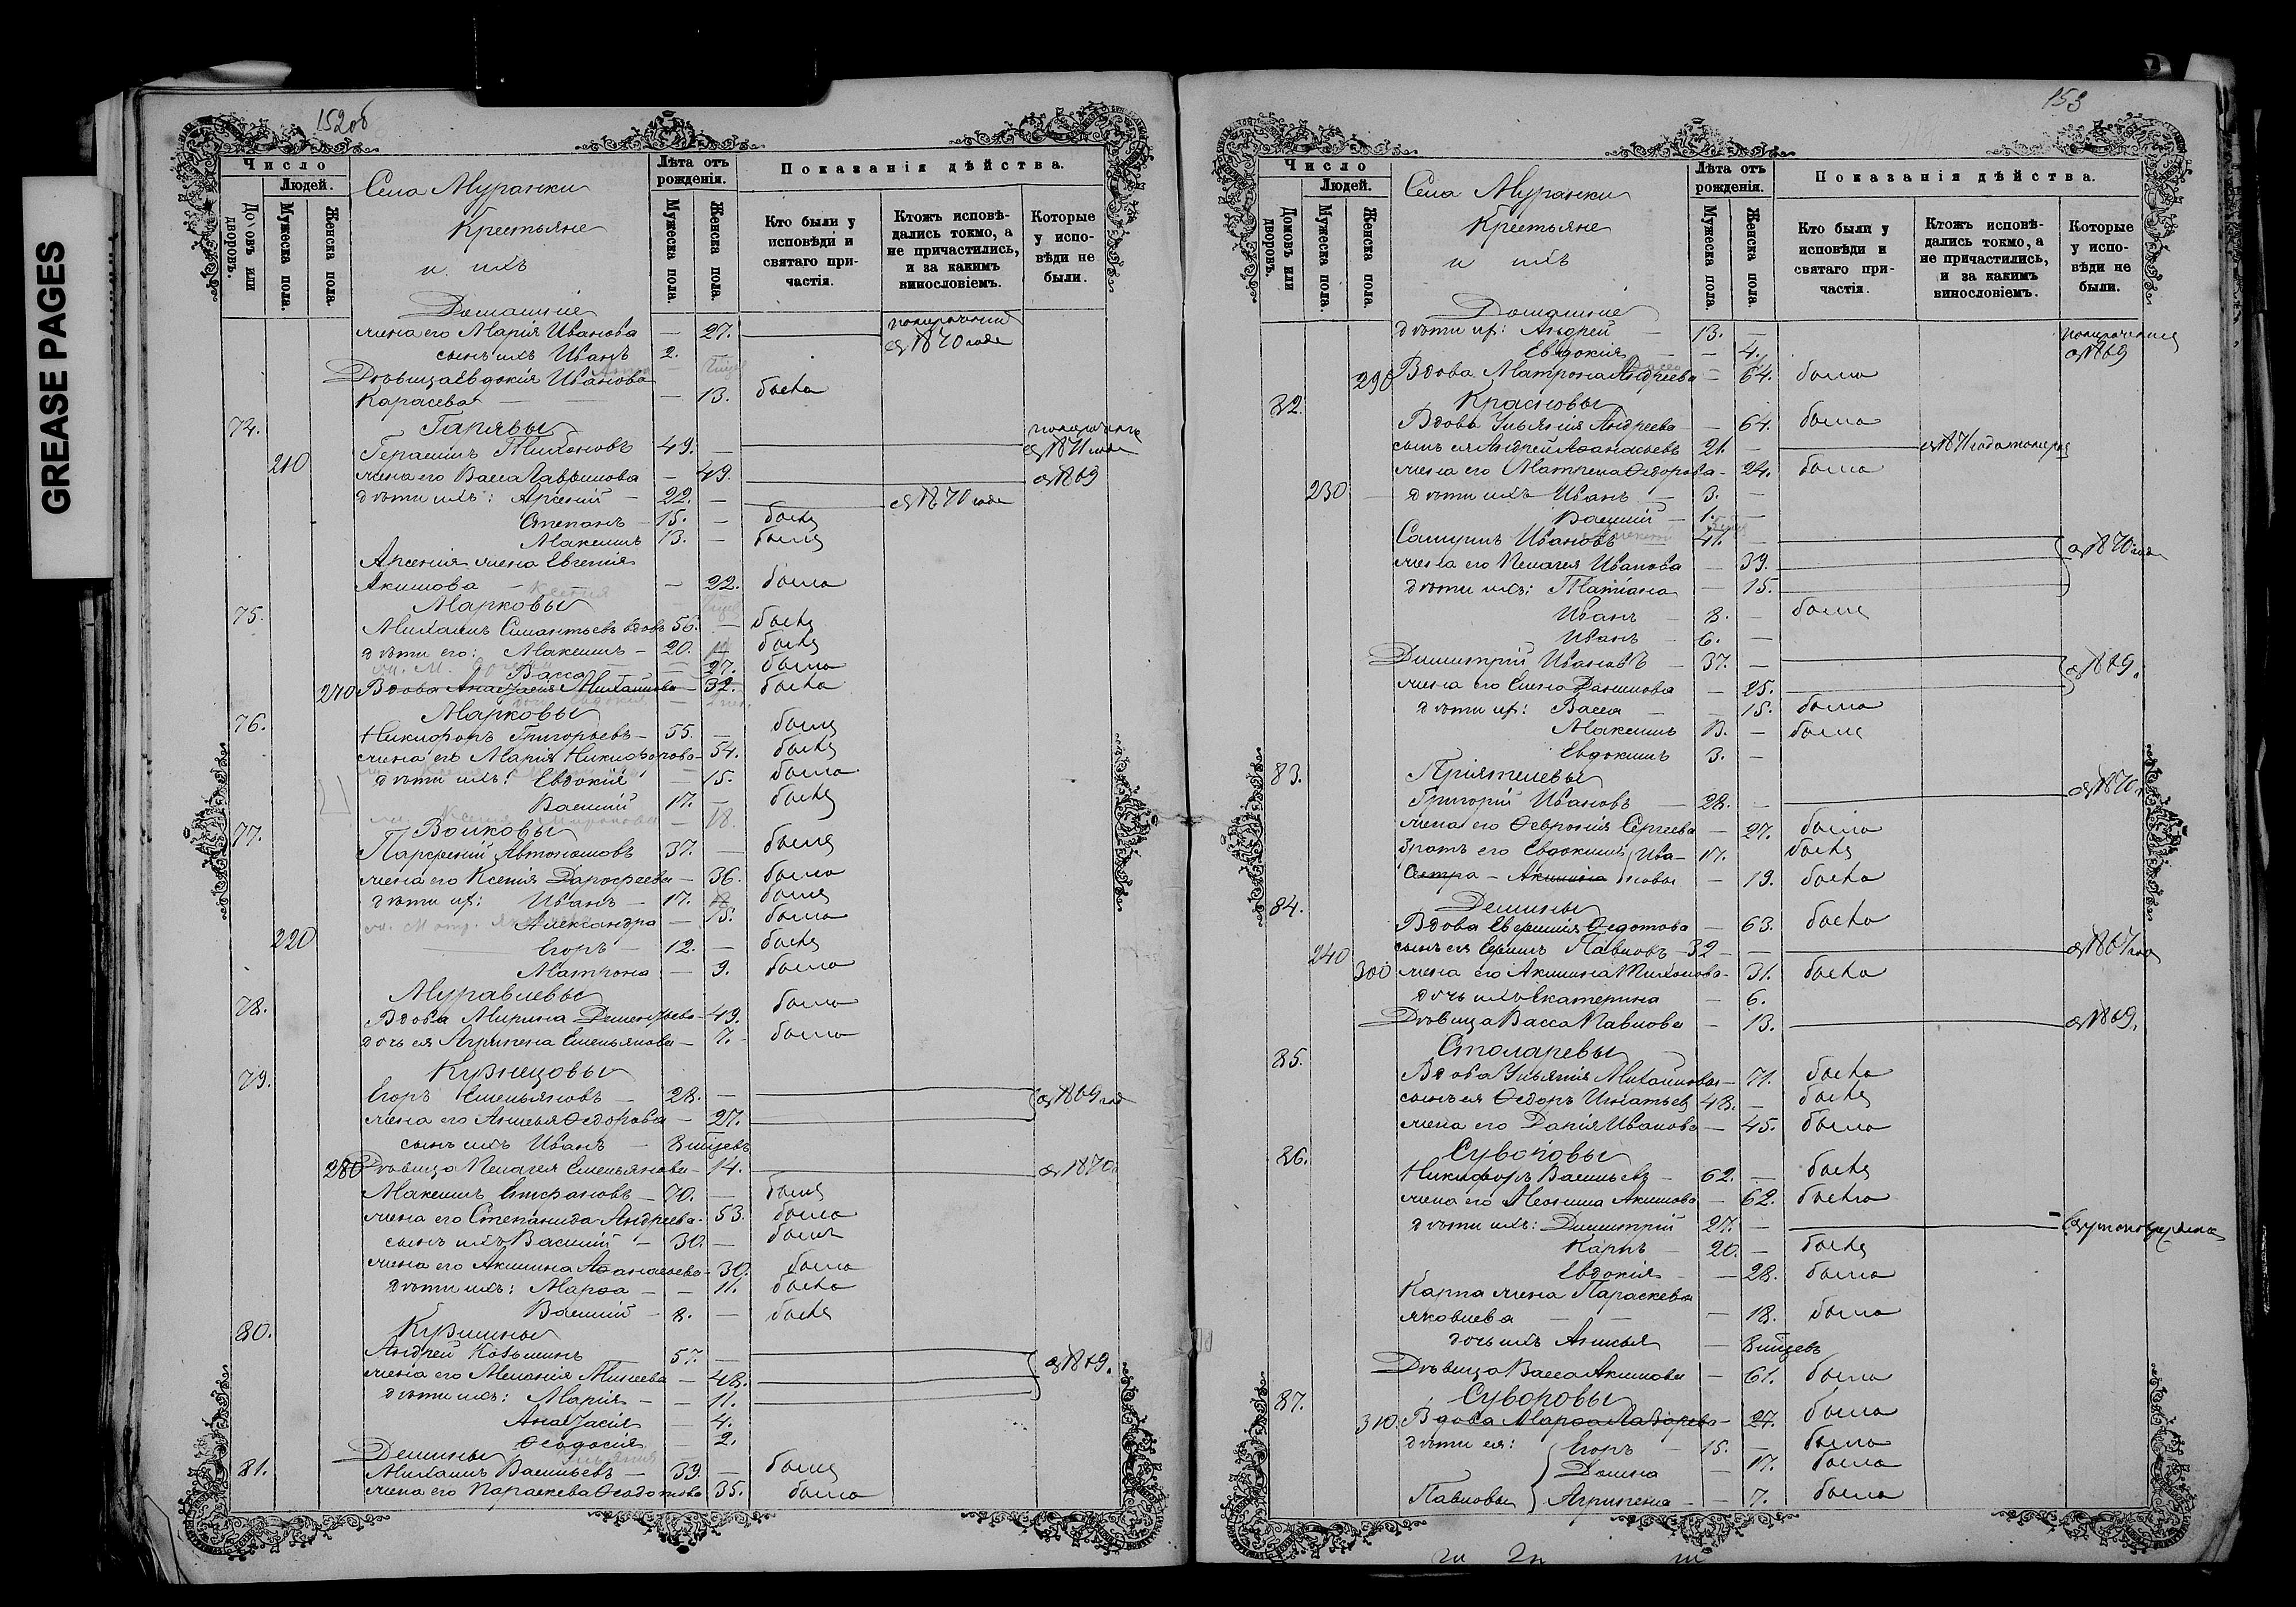 GREASE PAGES
152об
Число
Людей.
Домовъ или дворовъ.
Мужеска пола.
Женска пола.
Села Муранки
Крестьяне
и ихъ
Домашніе
Лѣта отъ рожденія.
Мужеска пола.
Женска пола.
Показанія дѣйства.
Кто были у исповѣди и святаго причастія.
Ктожъ исповѣдались токмо, а не причастились, и за какимъ винословіемъ.
Которые у исповѣди не были.
жена его Марія Иванова — 27. съ 1870 года
сынъ ихъ Иванъ 2.
Дѣвица Евдокія Иванова
Карасева — 13. была
74.
210 Герасимъ Тихоновъ 49. — съ 1871 года
жена его Васса Гаврилова — 49. съ 1869
дѣти ихъ: Арсеній — 22. — съ 1870 года
Степанъ — 15. — былъ
Максимъ 13. — былъ
Арсенія жена Евгенія
Акимова — 22. была
75. Марковы
Михаилъ Силантьевъ вдовъ 56. — былъ
дѣти его: Максимъ — 20. былъ
Васса 27. была
270 Вдова Анастасія Михайлова 32. была
76. Марковы
Никифоръ Григорьевъ — 55. — былъ
жена его Марія Никифорова — 54. была
дѣти ихъ: Евдокія — 15. была
Василій 17. — былъ
77. Волковы
Парфеній Автономовъ 37. — былъ
жена его Ксенія Дорофеева — 36. была
дѣти их: Иванъ — 17. былъ
Александра — 15. была
220 Егоръ — 12. — былъ
Матрона — 9. была
78. Муравлевы
Вдова Ирина Дементьева — 49. была
дочь ея Агрипена Емельянова — 7. была
79. Кузнецовы
Егоръ Емельяновъ — 28. — съ 1869 год
жена его Анисья Ѳедорова — 27.
сынъ ихъ Иванъ — 8 мѣсцевъ
280 Дѣвица Пелагея Емельянова — 14. съ 1870.
Максимъ — 70. — былъ
жена его Степанида Андреева — 53. была
сынъ ихъ Василій — 30. — былъ
жена его Акилина Аѳанасьева — 30. была
дѣти ихъ: Марѳа — — 11. была
Василій — 8. — былъ
80. Кузмины
Андрей Козьминъ 57. — съ 1869.
жена его Меланія Моисеева — 48.
дѣти ихъ: Марія — — 11.
Анастасія — 4.
Ѳеодосія — 2.
Демины
81. Михаилъ Васильевъ — 39. — былъ
жена его Параскева Ѳеодотова 35. была
153
Число
Людей.
Домовъ или дворовъ.
Мужеска пола.
Женска пола.
Села Муранки
Крестьяне
и ихъ
Домашніе
Лѣта отъ рожденія.
Мужеска пола.
Женска пола.
Показанія дѣйства.
Кто были у исповѣди и святаго причастія.
Ктожъ исповѣдались токмо, а не причастились, и за какимъ винословіемъ.
Которые у исповѣди не были.
дѣти их: Андрей — 13. —
Евдокія — — 4. съ 1869
290 Вдова Матрона Андреева — 64. была
82. Красновы
Вдова Ульянія Андреева — 64. была
сынъ ея Андрей Аѳанасьевъ 21. — съ 1871 года
жена его Матрена Ѳедорова — 24. была
230 дѣти ихъ Иванъ — 3. —
Василій — 1. —
Самуилъ Ивановъ — 41. — съ 1870 года
жена его Пелагея Иванова — 39.
дѣти ихъ: Татіана — 15.
Иванъ — 8. — былъ
Иванъ — 6. —
Димитрій Ивановъ — 37. — съ 1869.
жена его Елена Данилова — 25.
дѣти их: Васса — 15. была
Максимъ 13. — былъ
Евдокимъ 3. —
83. Пріятелевы
Григорій Ивановъ — 28. — съ 1870.
жена его Ѳевронія Сергеева — 27. была
братъ его Евдокимъ Ива- 17. былъ
Сестра — Акилина новы — 19. была
84. Демины
Вдова Евфимія Ѳедотова — 63. была
240 сынъ ея Ефимъ Павловъ — 32 — съ 1867 года
300 жена его Акилина Тихонова — 31. была
дочь ихъ Екатерина — 6.
Дѣвица Васса Павлова — 13. съ 1869.
85. Столаревы
Вдова Ульянія Михайлова — 71. была
сынъ ея Ѳедоръ Игнатьев 48. — былъ
жена его Дарія Иванова — 45. была
86. Суворовы
Никифоръ Васильевъ — 62. — былъ
жена его Акимова — 62. была
дѣти ихъ: Димитрій 27. —
Карпъ — 20. — былъ
Евдокія — 28. была
Карпа жена Параскева
Яковлева — 18. была
дочь ихъ Анисья — 8 мѣсцевъ
Дѣвица Васса Акимова — 61. была
87. Суворовы
310. Вдова Марѳа Лазарева — 27. была
дѣти ея: Егоръ — 15. — былъ
Домна — 17. была
Павловы Агрипена — — 7. была